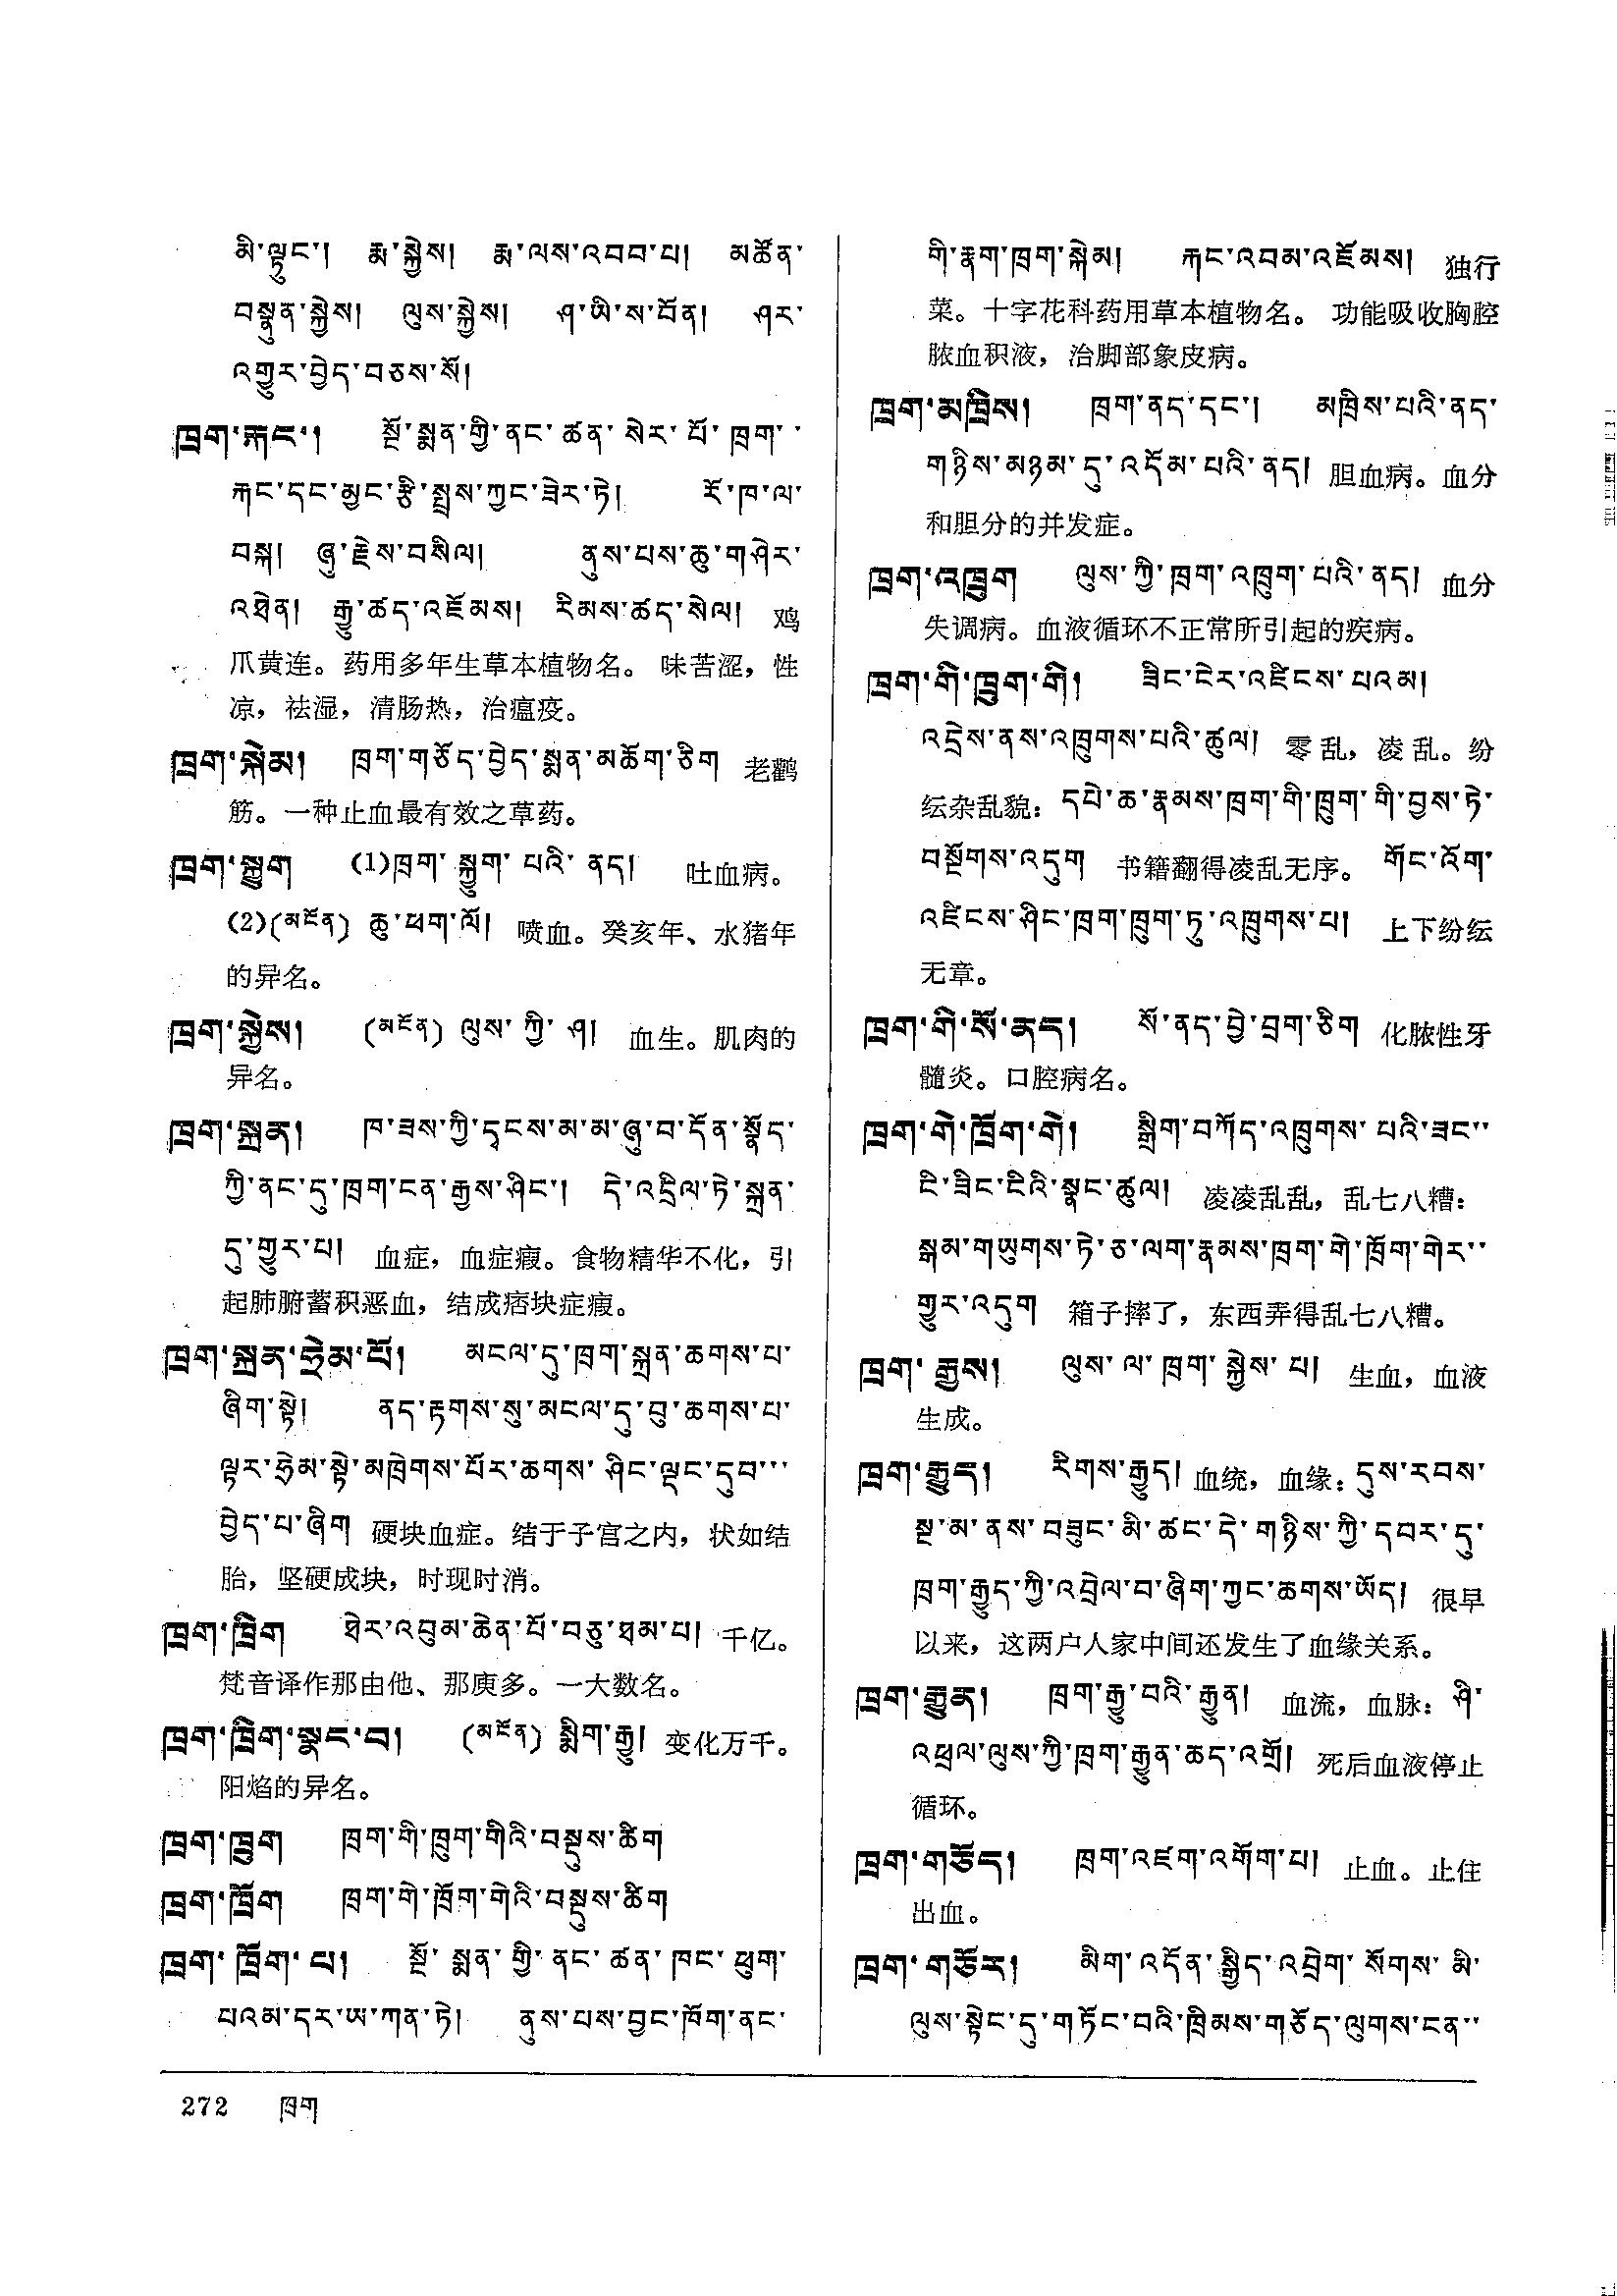 མི་ལྟུང་། རྨ་སྐྱེས། རྨ་ལས་འབབ་པ། མཚོན་
བསྣུན་སྐྱེས། ལུས་སྐྱེས། ཤ་ཡི་ས་བོན། ཤར་
འགྱུར་བྱེད་བཅས་སོ།
ཁྲག་རྐང་། སྔོ་སྨན་གྱི་ནང་ཚན་སེར་པོ་ཁྲག་
རྐང་དང་མྱང་རྩི་སྤྲས་ཀྱང་ཟེར་ཏེ། རོ་ཁ་ལ་
བསྐ། ཞུ་རྗེས་བསིལ། ནུས་པས་ཆུ་གཤེར་
འཐེན། རྒྱུ་ཚད་འཇོམས། རིམས་ཚད་སེལ། 鸡
爪黄连。药用多年生草本植物名。 味苦涩，性
凉，祛湿，清肠热，治瘟疫。
ཁྲག་སྐེམ། ཁྲག་གཅོད་བྱེད་སྨན་མཆོག་ཅིག 老鹳
筋。一种止血最有效之草药。
ཁྲག་སྐྱུག (1)ཁྲག་སྐྱུག་པའི་ནད། 吐血病。
(2)(མངོན) ཆུ་ཕག་ལོ། 喷血。癸亥年、水猪年
的异名。
ཁྲག་སྐྱེས། (མངོན) ལུས་ཀྱི་ཤ། 血生。肌肉的
异名。
ཁྲག་སྐྲན། ཁ་ཟས་ཀྱི་དྭངས་མ་མ་ཞུ་བ་དོན་སྣོད་
ཀྱི་ནང་དུ་ཁྲག་ངན་རྒྱས་ཤིང་། དེ་འདྲིལ་ཏེ་སྐྲན་
དུ་གྱུར་པ། 血症，血症瘕。食物精华不化，引
起肺腑蓄积恶血，结成痞块症瘕。
ཁྲག་སྐྲན་ཧྲེམ་པོ། མངལ་དུ་ཁྲག་སྐྲན་ཆགས་པ་
ཞིག་སྟེ། ནད་རྟགས་སུ་མངལ་དུ་བུ་ཆགས་པ་
ལྟར་ཧྲེམ་སྟེ་མཁྲེགས་པོར་ཆགས་ཤིང་ལྡང་དུབ་
བྱེད་པ་ཞིག 硬块血症。结于子宫之内，状如结
胎，坚硬成块，时现时消。
ཁྲག་ཁྲིག ཐེར་འབུམ་ཆེན་པོ་བཅུ་ཐམ་པ། 千亿。
梵音译作那由他、那庾多。一大数名。
ཁྲག་ཁྲིག་སྣང་བ། (མངོན) སྨིག་རྒྱུ། 变化万千。
阳焰的异名。
ཁྲག་ཁྲུག ཁྲག་གི་ཁྲུག་གིའི་བསྡུས་ཚིག
ཁྲག་ཁྲོག ཁྲག་གེ་ཁྲོག་གེའི་བསྡུས་ཚིག
ཁྲག་ཁྲོག་པ། སྔོ་སྨན་གྱི་ནང་ཚན་ཁང་ཕུག་
པའམ་དར་ཡ་ཀན་ཏེ། ནུས་པས་བྱང་ཁོག་ནང་
གི་རྣག་ཁྲག་སྐེམ། རྐང་འབམ་འཇོམས། 独行
菜。十字花科药用草本植物名。 功能吸收胸腔
脓血积液，治脚部象皮病。
ཁྲག་མཁྲིས། ཁྲག་ནད་དང་། མཁྲིས་པའི་ནད་
གཉིས་མཉམ་དུ་འདོམ་པའི་ནད། 胆血病。血分
和胆分的并发症。
ཁྲག་འཁྲུག ལུས་ཀྱི་ཁྲག་འཁྲུག་པའི་ནད། 血分
失调病。血液循环不正常所引起的疾病。
ཁྲག་གི་ཁྲུག་གེ། ཟིང་ངེར་འཛིངས་པའམ།
འདྲེས་ནས་འཁྲུགས་པའི་ཚུལ། 零乱，凌乱。纷
纭杂乱貌：དཔེ་ཆ་རྣམས་ཁྲག་གི་ཁྲུག་གི་བྱས་ཏེ་
བསྔོགས་འདུག 书籍翻得凌乱无序。 གོང་འོག་
འཛིངས་ཤིང་ཁྲག་ཁྲུག་ཏུ་འཁྲུགས་པ། 上下纷纭
无章。
ཁྲག་གི་སོ་ནད། སོ་ནད་བྱེ་བྲག་ཅིག 化脓性牙
髓炎。口腔病名。
ཁྲག་གེ་ཁྲོག་གེ། སྒྲིག་བཀོད་འཁྲུགས་པའི་ཟང་
ངི་ཟིང་ངིའི་སྣང་ཚུལ། 凌凌乱乱，乱七八糟：
སྒམ་གཡུགས་ཏེ་ཅ་ལག་རྣམས་ཁྲག་གེ་ཁྲོག་གེར་
གྱུར་འདུག 箱子摔了，东西弄得乱七八糟。
ཁྲག་རྒྱས། ལུས་ལ་ཁྲག་སྐྱེས་པ། 生血，血液
生成。
ཁྲག་རྒྱུད། རིགས་རྒྱུད། 血统，血缘：དུས་རབས་
སྔ་མ་ནས་བཟུང་མི་ཚང་དེ་གཉིས་ཀྱི་དབར་དུ་
ཁྲག་རྒྱུད་ཀྱི་འབྲེལ་བ་ཞིག་ཀྱང་ཆགས་ཡོད། 很早
以来，这两户人家中间还发生了血缘关系。
ཁྲག་རྒྱུན། ཁྲག་རྒྱུ་བའི་རྒྱུན། 血流，血脉：ཤི་
འཕྲལ་ལུས་ཀྱི་ཁྲག་རྒྱུན་ཆད་འགྲོ། 死后血液停止
循环。
ཁྲག་གཅོད། ཁྲག་འཛག་འགོག་པ། 止血。止住
出血。
ཁྲག་གཅོར། མིག་འདོན་སྒྱིད་འབྲེག་སོགས་མི་
ལུས་སྟེང་དུ་གཏོང་བའི་ཁྲིམས་གཅོད་ལུགས་ངན་
272 ཁྲག